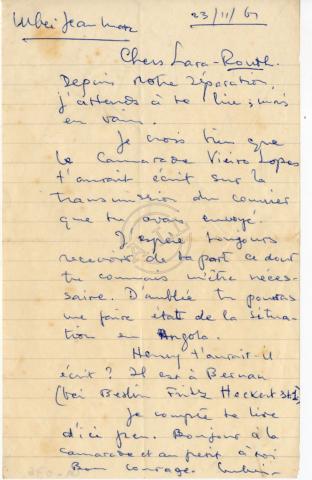 Mbei Jean Marc 23/11/61
Chers Lara-Routh.
Depuis notre séparation,
j'attends à te lire; mais
en vain.
Je crois bien que
le Camarade Vieira Lopes
t'aurait écrit sur la
transmission du courrier
que tu avais envoyé.
J'espère toujours
recevoir de ta part ce dont
tu connais m'être néces-
saire. D'emblée tu pourras
me faire état de la situa-
tion en Angola.
Henry t'aurait-il
écrit? Il est à Bernau
(bei Berlin Fritz Heckert
Je compte te lire
d'ici peu. Bonjour à la
camarade et au petit à toi
Bon courage.